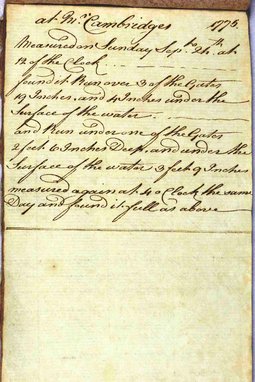 at Mr. Cambridges 1775
Measured on Sunday Sepr. 24th. at
12 of the Clock
found it Run over 3 of the Gates
19 Inches, and 4 Inches under the
Surface of the water
and Run under one of the Gates
2 feet 6 Inches Deep, and under the
Surface of the water 3 feet 9 Inches
measured again at 4 o Clock the same
Day and found it full as above